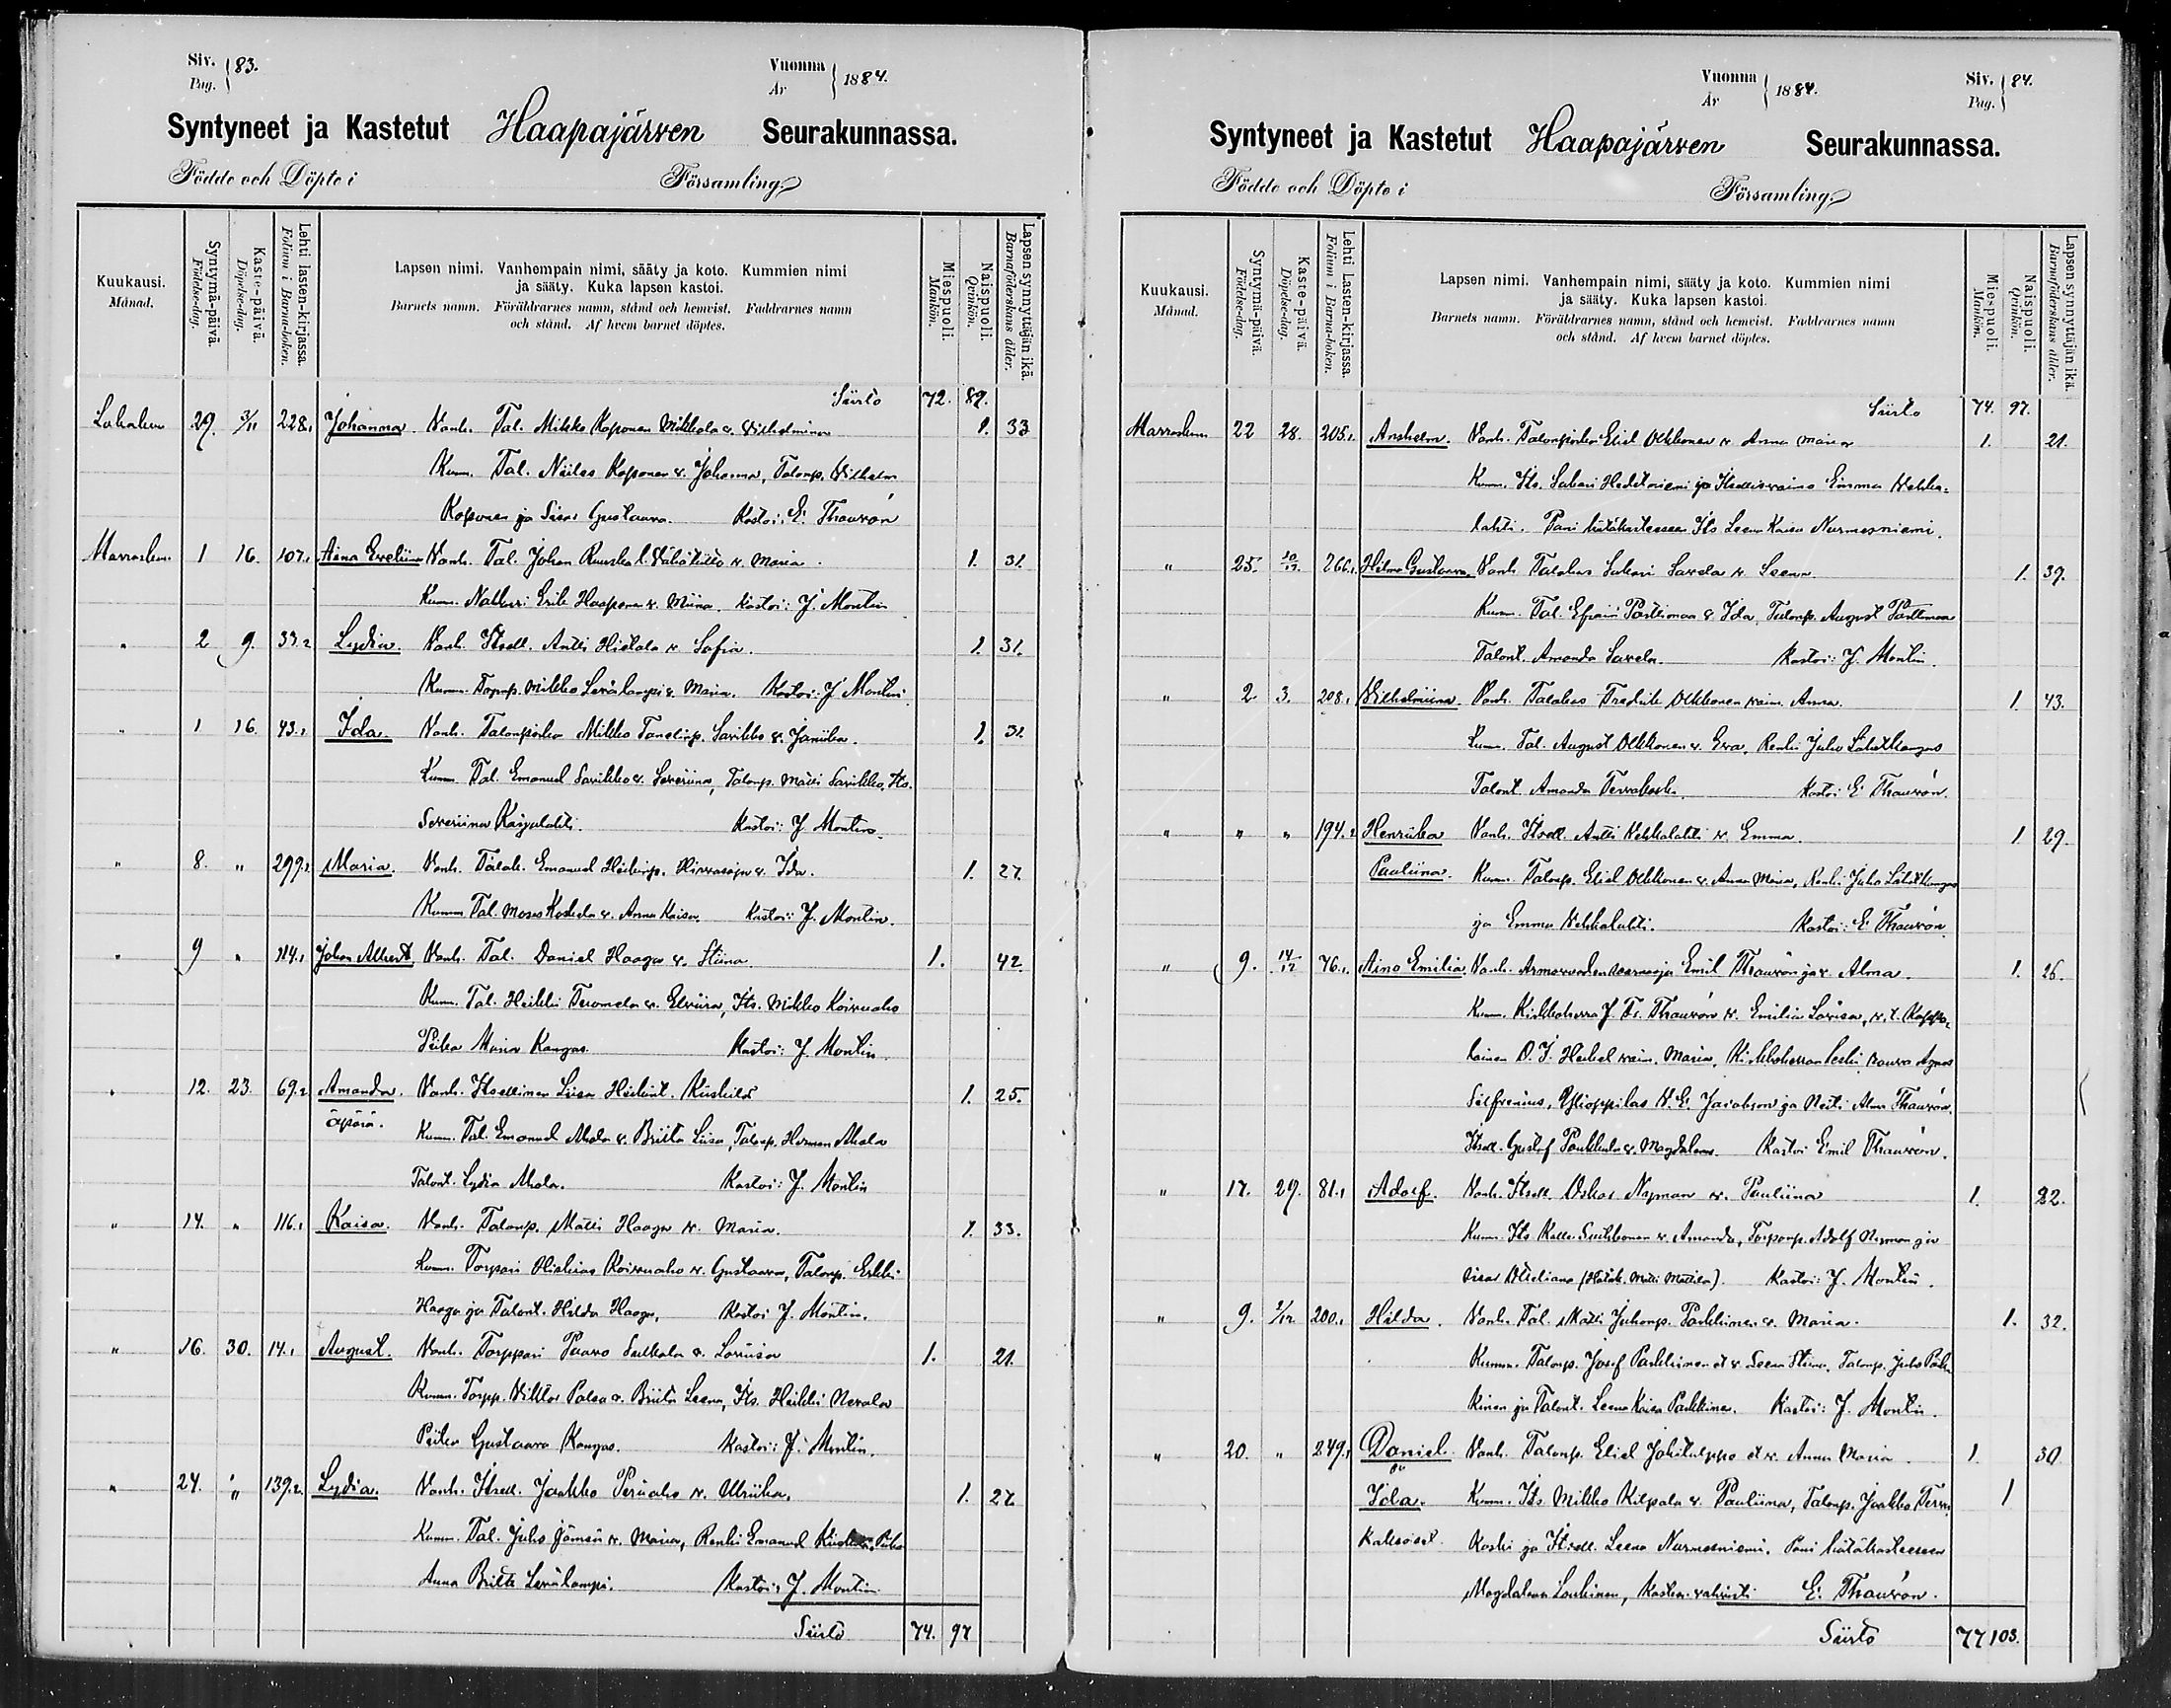 Siv. Pag. 83.
Vuonna År 1884.
Syntyneet ja Kastetut Haapajärven Seurakunnassa.
Födde och Döpte i Församling.
Kuukausi. Månad.
Syntymä-päivä. Födelse-dag.
Kaste-päivä. Döpelse-dag.
Lehti lasten-kirjassa. Folium i Barna-boken.
Lapsen nimi. Vanhempain nimi, sääty ja koto. Kummien nimi
ja sääty. Kuka lapsen kastoi.
Barnets namn. Föräldrarnes namn, stånd och hemvist. Faddrarnes namn
och stånd. Af hvem barnet döptes.
Miespuoli. Mankön.
Naispuoli. Qvinkön.
Lapsen synnyttäjän ikä. Barnaföderskans ålder.
Siirto 72. 89.
Lokakuu 29. 3/11 228.1 Johanna. Vanh. Tal. Mikko Koponen Mikkola v. Wilhelmina 1. 33
Kumm. Tal. Niilas Koponen v. Johanna, Talonp. Wilhelm
Koponen ja Sisar Gustaava. Kastoi: E. Thauvón
Marraskuu 1 16. 107.1 Aina Eveliina Vanh. Tal. Johan v. Maria. 1. 31.
Kumm. Nahkuri Erik Haaponen v. Miina. Kastoi: J. Montin
" 2 9. 33.2 Lydia. Vanh. Itsell. Antti Hietala v. Sofia. 1. 31.
Kumm. Torpp. Mikko Levälampi v. Maria. Kastoi: J Montin
" 1 16. 43.1 Ida Vanh. Talonpoika Mikko Savikko v. 1. 32
Kumm. Tal. Emanuel Savikko v. Severiina, Talonp. Matti Savikko, Its.
Severiina Kaijalahti. Kastoi: J Montin.
" 8. " 299.2 Maria. Vanh. Emanuel Heikinp. v. Ida. 1. 27.
Kumm. Tal. Moses Koskela v. Anna Kaisa. Kastoi: J. Montin.
" 9 " 114.1 Johan Albert Vanh. Tal. Daniel Haaga v. Stiina 1. 42.
Kumm. Tal. Heikki v. Elviira, Its. Mikko Koivuaho
Piika Maria Kangas. Kastoi: J Montin.
" 12. 23. 69.2 Amanda. Vanh. Itsellinen Liisa Heikint. Kiiskilä 1. 25.
äpärä. Kumm. Tal. Emanuel Ahola v. Briita Liisa, Talonp. Herman Ahola
Talont. Lydia Ahola. Kastoi: J. Montin
" 14. " 116.1 Kaisa. Vanh. Talonp. Matti Haaga v. Maria. 1. 33.
Kumm. Torppari Koivuaho v. Gustaava, Talonp. Erkki
Haaga ja Talont. Hilda Haaga. Kastoi J. Montin.
" 16. 30. 14.1 August. Vanh. Torppari Paavo v. Loviisa 1. 21.
Kumm. Torpp. Viktor Palea v. Briita Leena, Its. Heikki Nevala
Piika Gustaava Kangas. Kastoi: J. Montin.
" 24. " 139.2 Lydia. Vanh. Itsell. Jaakko v. Ulriika. 1. 27.
Kumm. Tal. Juho Jämsä v. Maria, Renki Emanuel
Anna Briita Levälampi. Kastoi: J. Montin
Siirto 74. 97
Vuonna År 1884.
Siv. Pag. 84.
Syntyneet ja Kastetut Haapajärven Seurakunnassa.
Födde och Döpte i Församling.
Kuukausi. Månad.
Syntymä-päivä. Födelse-dag.
Kaste-päivä. Döpelse-dag.
Lehti Lasten-kirjassa. Folium i Barna-boken.
Lapsen nimi. Vanhempain nimi, sääty ja koto. Kummien nimi
ja sääty. Kuka lapsen kastoi.
Barnets namn. Föräldrarnes namn, stånd och hemvist. Faddrarnes namn
och stånd. Af hvem barnet döptes.
Miespuoli. Mankön.
Naispuoli. Qvinkön.
Lapsen synnyttäjän ikä. Barnaföderskans ålder.
Siirto 74. 97.
Marraskuu 22 28. 205.1 Anshelm. Vanh. Talonpoika Eliel Olkkonen v. Anna Maria 1. 21.
Kumm. Its. Sakari ja Emma Vehka-
lahti. Pani hätäkasteeseen Its. Leena Kaisa Nurmesniemi.
" 25. 266.1 Hilma Gustaava. Vanh. Sakari Savela v. Leena. 1. 39.
Kumm. Tal. Efraim v. Ida, Talonp. August
Talont. Amanda Savela. Kastoi: J. Montin.
" 2 3. 208.1 Wilhelmiina. Vanh. Fredrik Olkkonen vaim. Anna. 1. 43.
Kumm. Tal. August Olkkonen v. Eva, Renki Juho
Talont. Amanda Kastoi E. Thauvón.
" " " 194.2 Henriika Vanh. Itsell. Antti Vehkalahti v. Emma. 1. 29.
Pauliina. Kumm. Talonp. Eliel Olkkonen v. Anna Maria, Renki Juho
ja Emma Vehkalahti. Kastoi: E. Thauvón
" 9. 14/12 76.1. Aino Emilia. Vanh. Armovuodensaarnaaja Emil Thauvón ja v. Alma. 1. 26.
Kumm. Kirkkoherra J. Fr. Thauvón v. Emilia Lovisa, v.t. Kappa-
lainen O. I. vaim. Maria, Kirkkoherran leski rouva Agnes
Ylioppilas ja Neiti Alma Thauvón.
Itsell. Gustaf v. Magdalena. Kastoi Emil Thauvón.
" 17. 29. 81.1 Adolf. Vanh. Itsell. Oskar Nyman v. Pauliina 1. 22.
Kumm. Its Kalle v. Amanda, Adolf Nyman ja
Kastoi: J. Montin.
" 9. 200.1 Hilda. Vanh. Tal. Matti Juhonp. Parkkinen v. Maria. 1. 32.
Kumm. Talonp. Josef Parkkinen v. Leena Stiina, Talonp. Juho Park-
kinen ja Talont. Leena Kaisa Parkkinen. Kastoi: J. Montin.
" 20. " 249.1 Daniel Vanh. Talonp. Eliel v. Anna Maria. 1. 30
ja
Ida. Kumm. Its Mikko Kilpala v. Pauliina, Talonp. Jaakko 1
kaksoiset. ja Itsell. Leena Nurmesniemi. Pani hätäkasteeseen
Magdalena Kasteen vahvisti E. Thauvón.
Siirto 77 103.